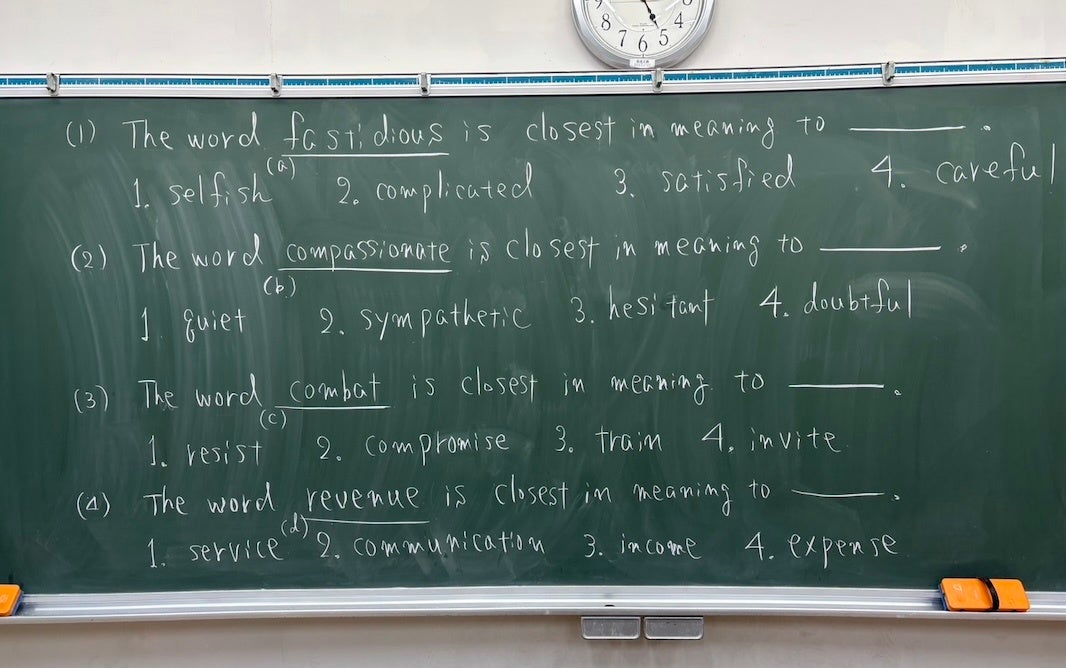 9 8 7 6 5 4
(1) The word fastidious is closest in meaning to ______.
(a)
1. selfish 2. complicated 3. satisfied 4. careful
(2) The word compassionate is closest in meaning to ______.
(b)
1. quiet 2. sympathetic 3. hesitant 4. doubtful
(3) The word combat is closest in meaning to ______.
(c)
1. resist 2. compromise 3. train 4. invite
(4) The word revenue is closest in meaning to ______.
(d)
1. service 2. communication 3. income 4. expense